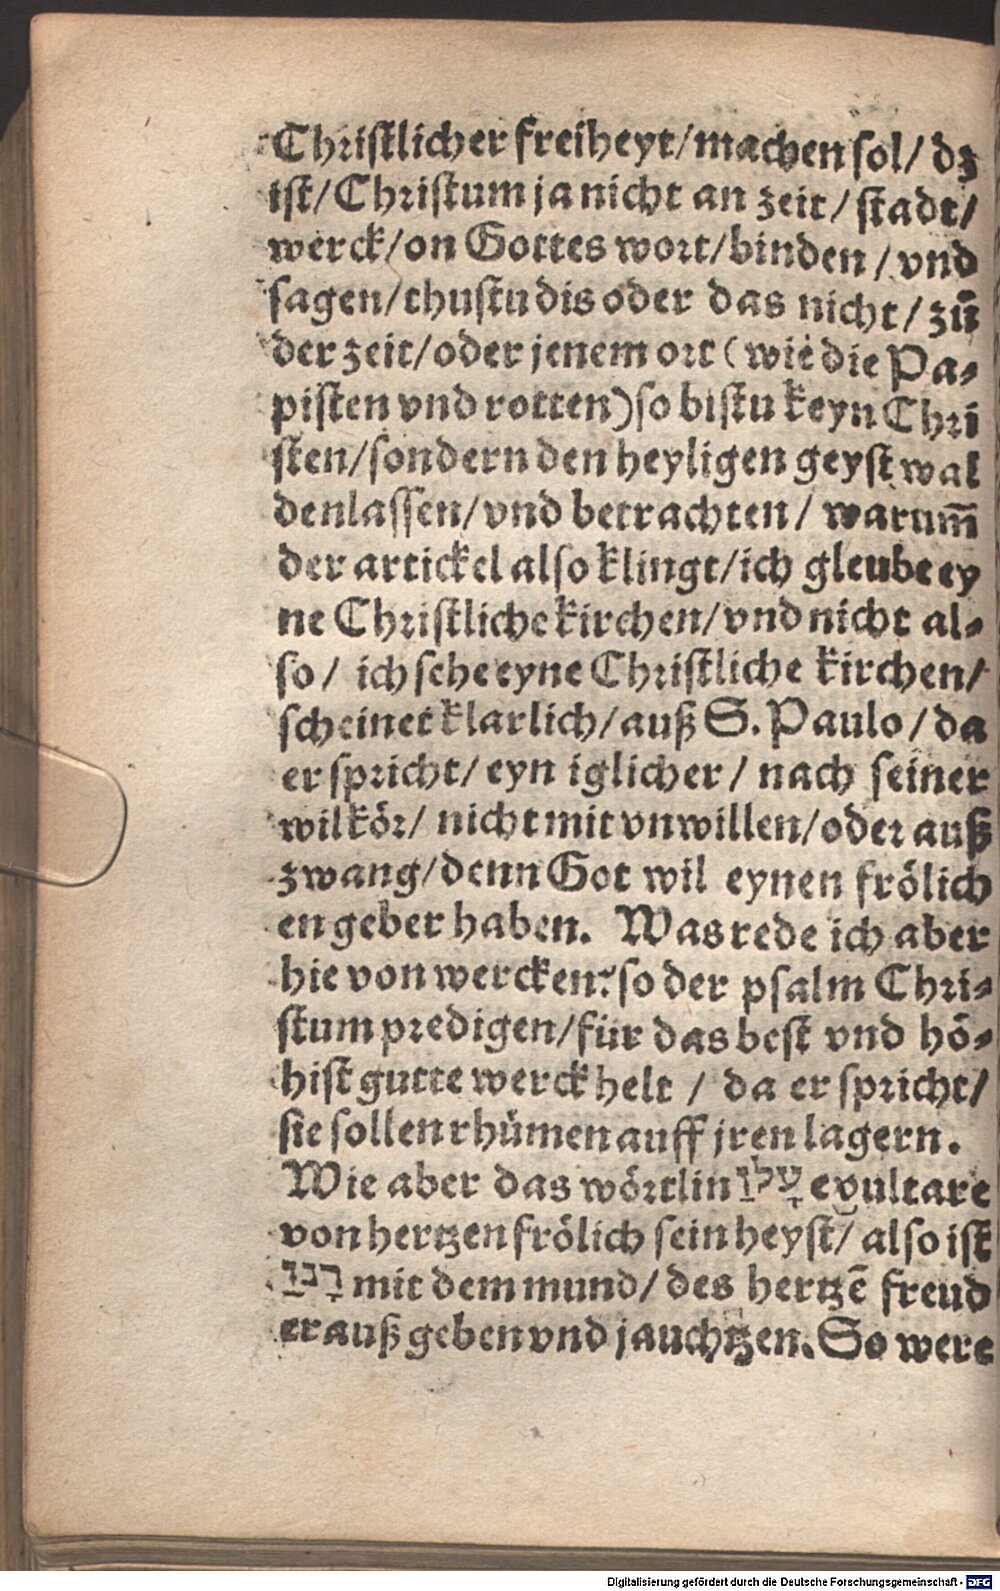 Christlicher freiheyt/machen sol/ dz
ist/Christum ja nicht an zeit/ stadt/
werck/on Gottes wort/binden/vnd
sagen/thustu dis oder das nicht/zů
der zeit/oder jenem ort (wie die Pa-
pisten vnd rotten) so bistu keyn Chri
sten/sondern den heyligen geyst wal
den lassen/vnd betrachten/ warum̄
der artickel also klingt/ich gleube ey
ne Christliche kirchen/vnd nicht al-
so/ ich sehe eyne Christliche kirchen/
scheinet klarlich/auß S. Paulo/da
er spricht/eyn iglicher/ nach seiner
wilkör/ nicht mit vnwillen/oder auß
zwang/denn Got wil eynen frölich
en geber haben. Was rede ich aber
hie von wercken? so der psalm Chri-
stum predigen/für das best vnd hö-
hist gutte werck helt / da er spricht/
sie sollen rhümen auff jren lagern.
Wie aber das wörtlin עלז exultare
von hertzen frölich sein heyst/ also ist
רנן mit dem mund/ des hertzē freud
er auß geben vnd jauchtzen. So were
Digitalisierung gefördert durch die Deutsche Forschungsgemeinschaft - DFG